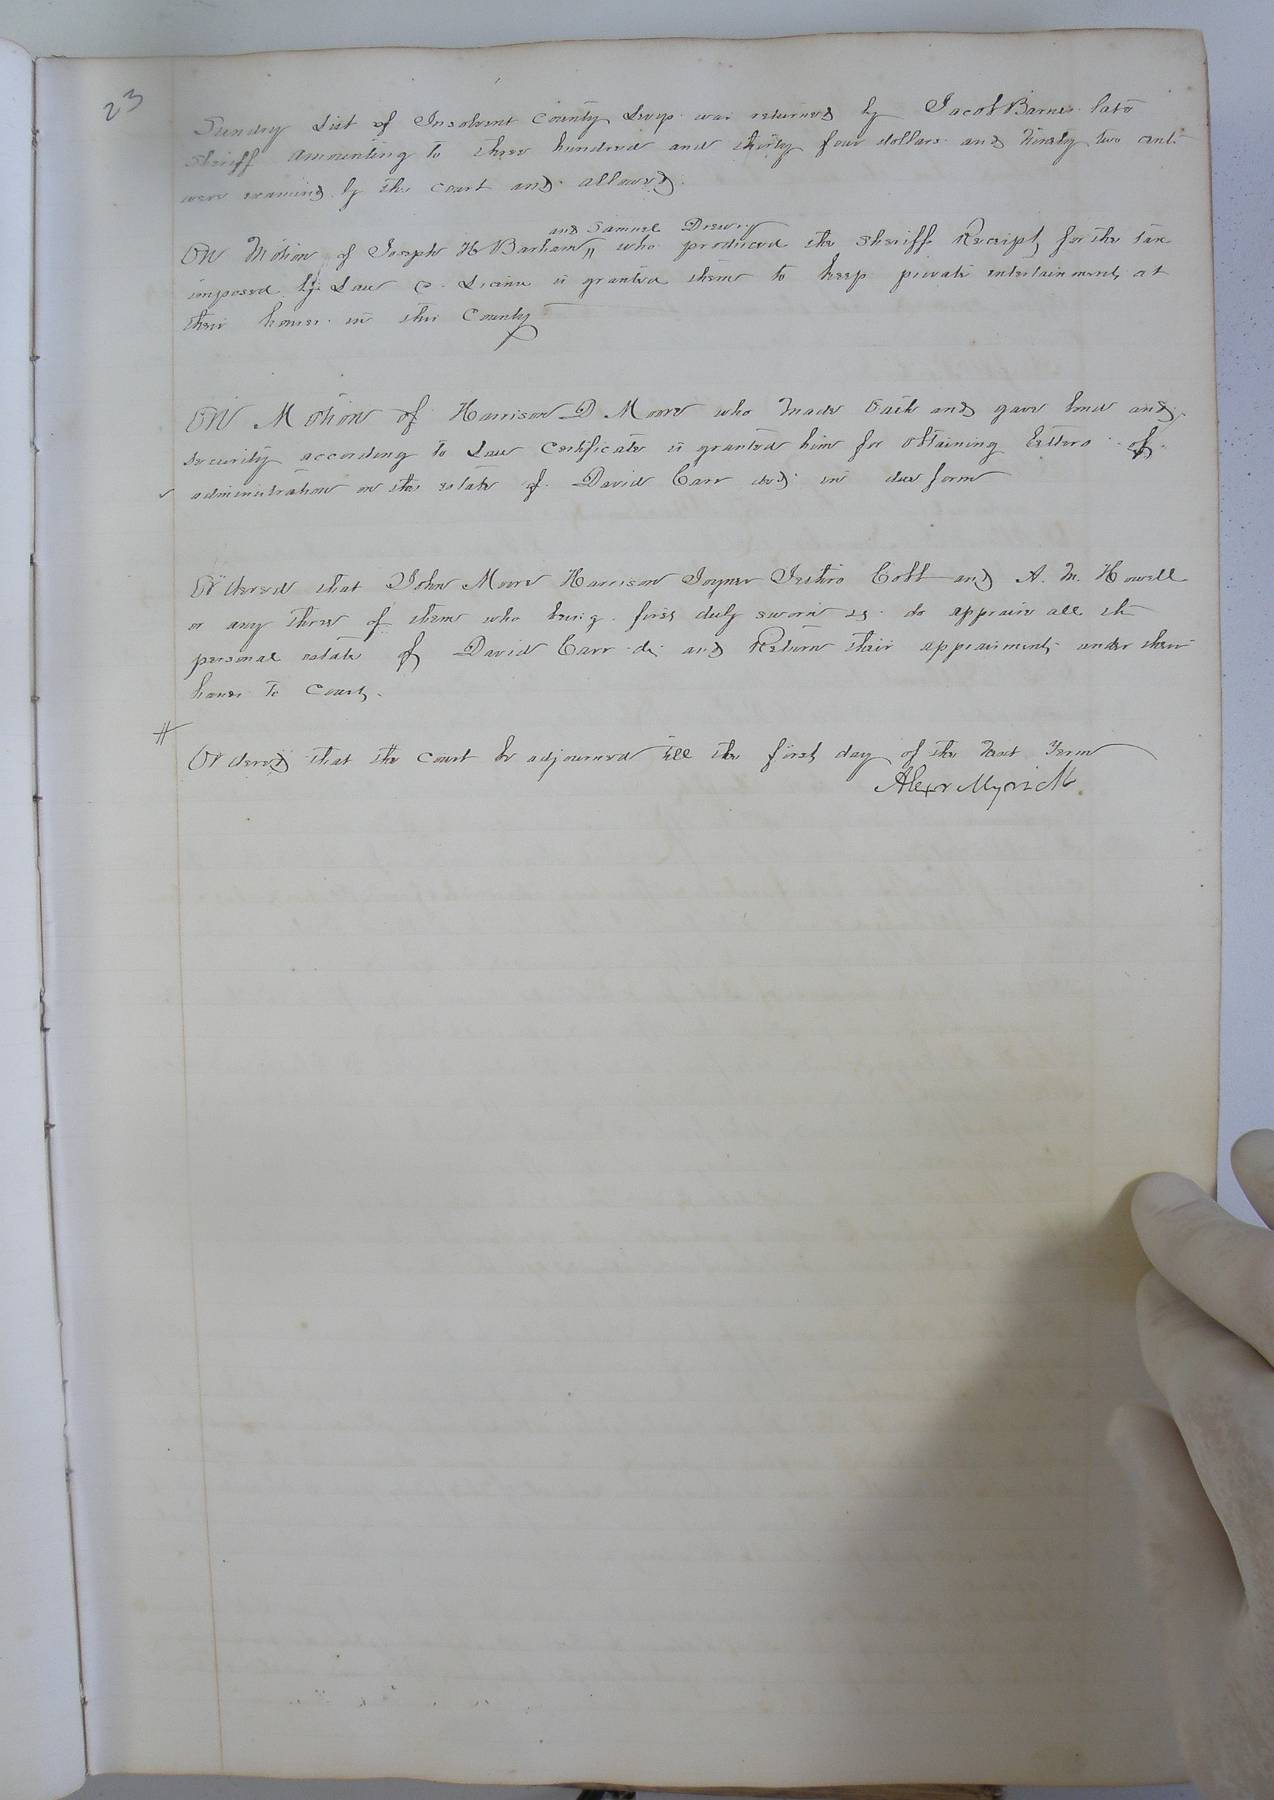 23
Sundry List of Insolvent County Levys was returned by Jacob Barnes late
Sheriff amounting to three hundred and thirty four dollars and Ninety two cents
were examined by the court and allowed.
and Samuel Drewry
ON Motion of Joseph H Barham " who produced the Sheriff Receipt for the tax
imposed by Law a Licence is granted them to keep private entertainment at
their houses in this County
ON Motion of Harrison D Moore who made Oath and gave bond and
security according to Law Certificate is granted him for obtaining Letters of
administration on the estate of David Carr decd. in due form
Ordered that John Moore Harrison Joyner Jethro Cobb and A. M. Howell
or any three of them who being first duly sworn do appraise all the
personal estate of David Carr de. and Return their appraisment under their
hands to Court.
#
Ordered that the court be adjourned till the first day of the Next Term
Alexr Myrick